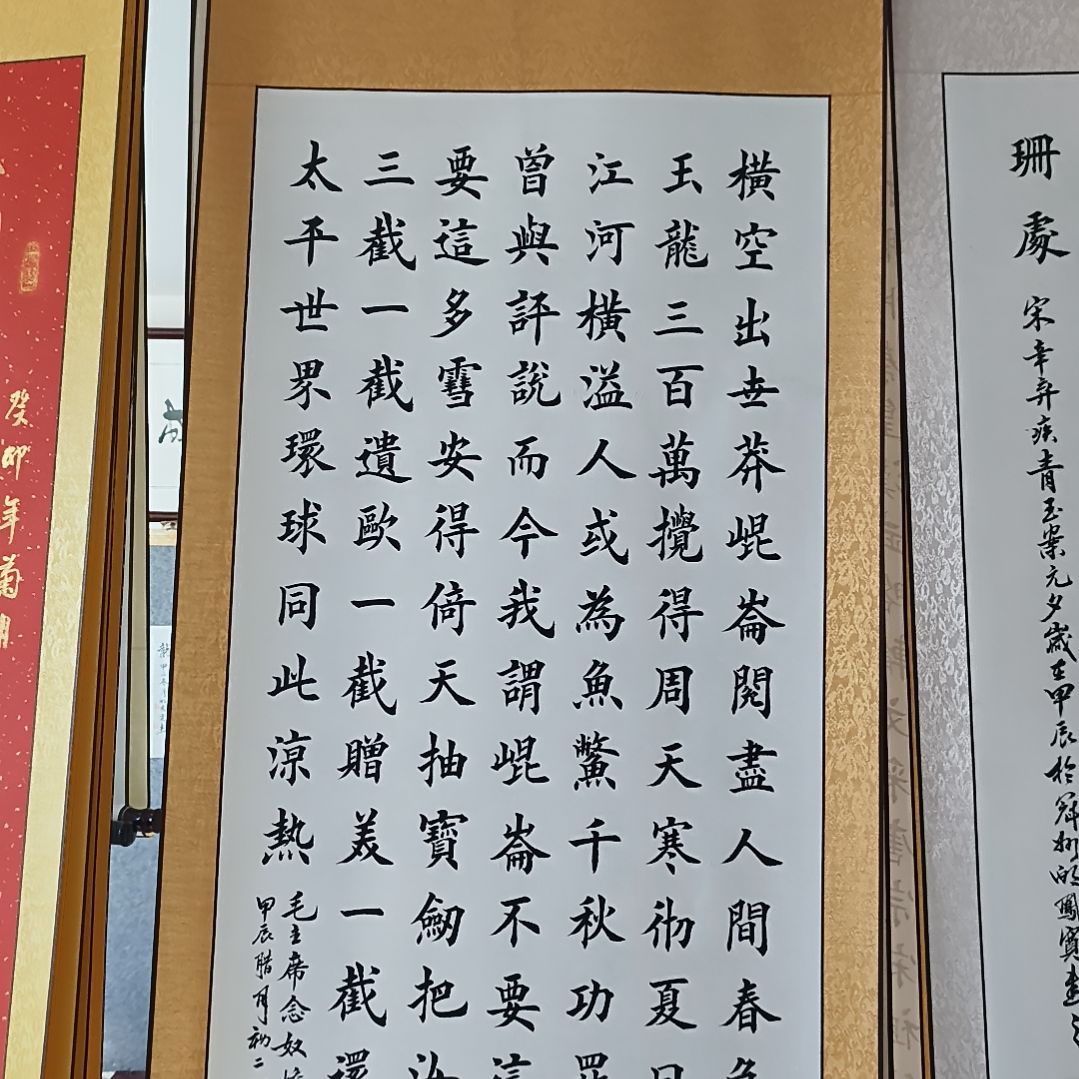 珊處
宋辛弃疾青玉案元夕歲在甲辰於
橫空出世莽崐崙閱盡人間春色
玉龍三百萬攪得周天寒彻夏日
江河橫溢人或為魚鱉千秋功罪
曾與評說而今我謂崐崙不要這
要這多雪安得倚天抽寶劒把汝
三截一截遺歐一截贈美一截還
太平世界環球同此涼熱
毛主席念奴
甲辰腊月初二
癸卯年